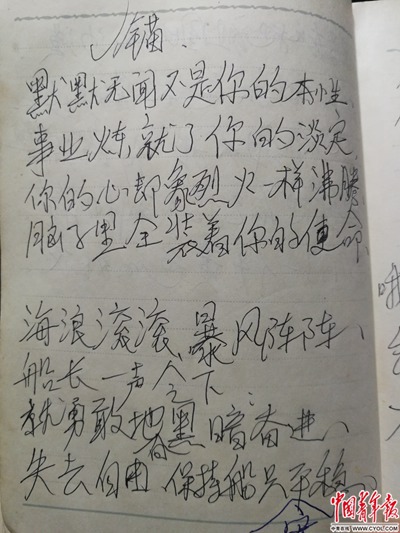 锚
默默无闻又是你的本性、
事业炼就了你的淡定、
你的心却象烈火一样沸腾
脑子里全装着你的使命、
海浪滚滚、暴风阵阵、
船长一声令下
就勇敢地向黑暗奋进、
失去自由 保持船只平稳。
哦
中国青年报
中青在线 WWW.CYOL.COM